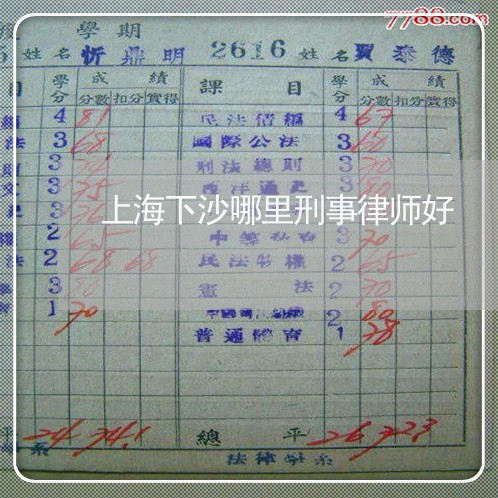 7788.com
學期
5 姓名 忻鼎明 2616 姓名 賈泰德
目 學分 成績 課目 學分 成績
分數 扣分 實得 分數 扣分 實得
4 81 民法債編 4 67
法 3 68 國際公法 3 60
3 刑法總則 3 70
3 75 西洋通史 3 80
上海下沙哪里刑事律师好
2 65 3 70
法 2 68 68 民法物權 2 65
3 80 憲法 2 70
1 70 2 80
普通體育 1 78
平 24 74.1 總平 26 72.3
系 法律學系